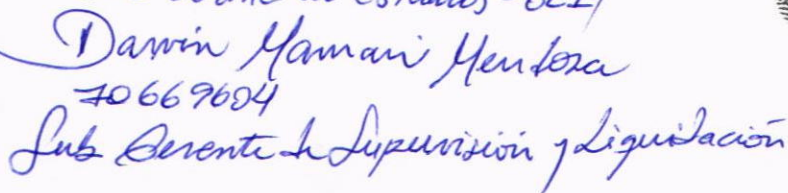 de estudios - OCI
Darwin Mamani Mendoza
70669604
Sub Gerente de Supervisión y Liquidación